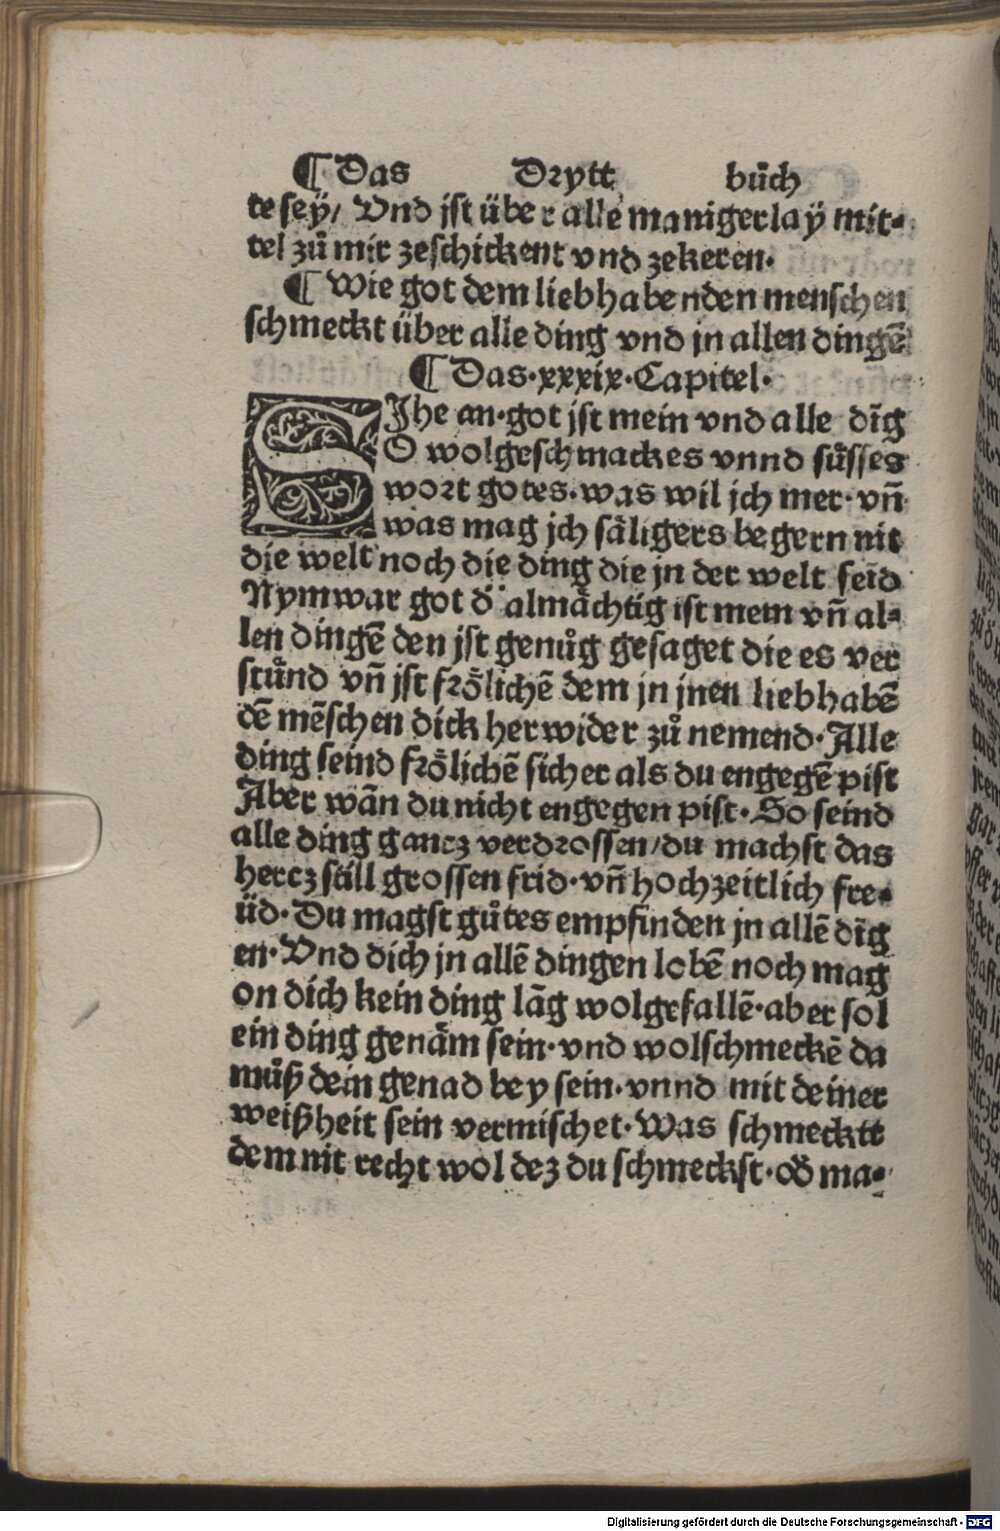 ¶ Das Drytt bůch
te seÿ/ Vnd jst über alle manigerlaÿ mit-
tel zů mir zeschickent vnd zekeren.
¶ Wie got dem liebhabenden menschen
schmeckt über alle ding vnd jn allen dingē
¶ Das·xxxix·Capitel·
SJhe an·got jst mein vnd alle dīg
O wolgeschmackes vnnd sůsses
wort gotes·was wil jch mer·vn̄
was mag jch såligers begern nit
die welt noch die ding die jn der welt seīd
Nymwar got d' almåchtig ist mein vn̄ al-
len dingē den jst genůg gesaget die es ver
stůnd vn̄ jst frölichē dem jn jnen liebhabē
dē mēschen dick herwider zů nemend·Alle
ding seind frölichē sicher als du engegē pist
Aber wān du nicht engegen pist·So seind
alle ding gancz verdrossen/du machst das
hercz still grossen frid·vn̄ hochzeitlich fre-
üd·Du magst gůtes empfinden jn allē dīg
en·Vnd dich jn allē dingen lobē noch mag
on dich kein ding lāg wolgefallē·aber sol
ein ding genåm sein·vnd wolschmeckē da
můß dein genad bey sein·vnnd mit deiner
weißheit sein vermischet·Was schmecktt
dem nit recht wol dez du schmeckst·od' ma-
Digitalisierung gefördert durch die Deutsche Forschungsgemeinschaft - DFG